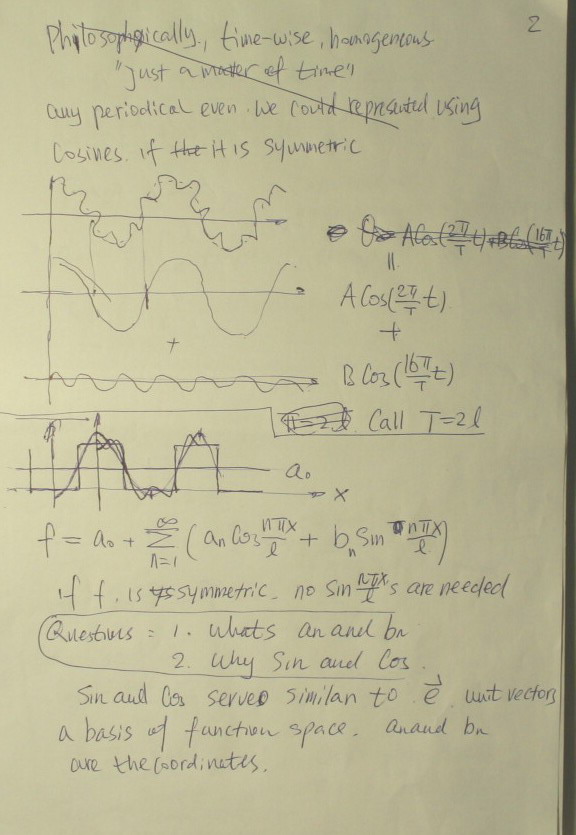 2
Philosophically, time-wise, homogenous
"just a matter of time"
any periodical even. We could represented using
Cosines. if the it is symmetric
ACos(2π/T t) + BCos(16π/T t)
=
A Cos(2π/T t)
+
+
B Cos(16π/T t)
T=2l Call T=2l
a₀
x
f = a₀ + ∞∑n=1 (aₙ Cos nπx/l + bₙ Sin nπx/l)
if f. is symmetric. no Sin nπx/l's are needed
Questions: 1. Whats an and bn
2. Why Sin and Cos.
Sin and Cos served similar to e⃗. unit vectors
a basis of function space. an and bn
are the coordinates.